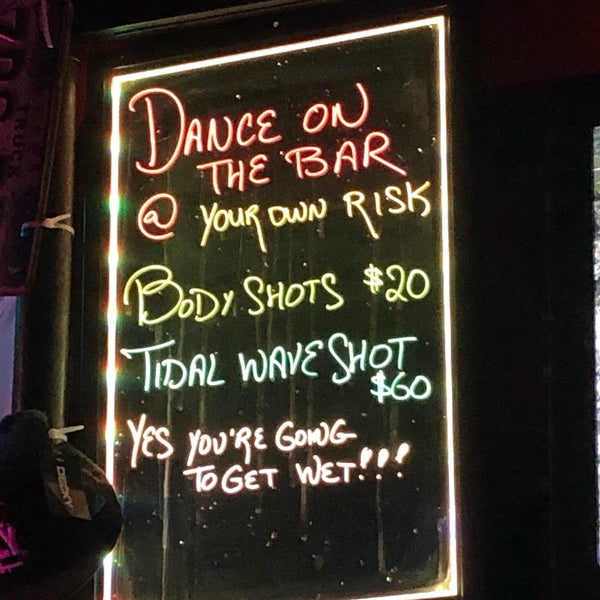 DANCE ON
THE BAR
@ YOUR OWN RISK
BODY SHOTS $20
TIDAL WAVE SHOT
$60
YES YOU'RE GOING
TO GET WET!!!
DECKY